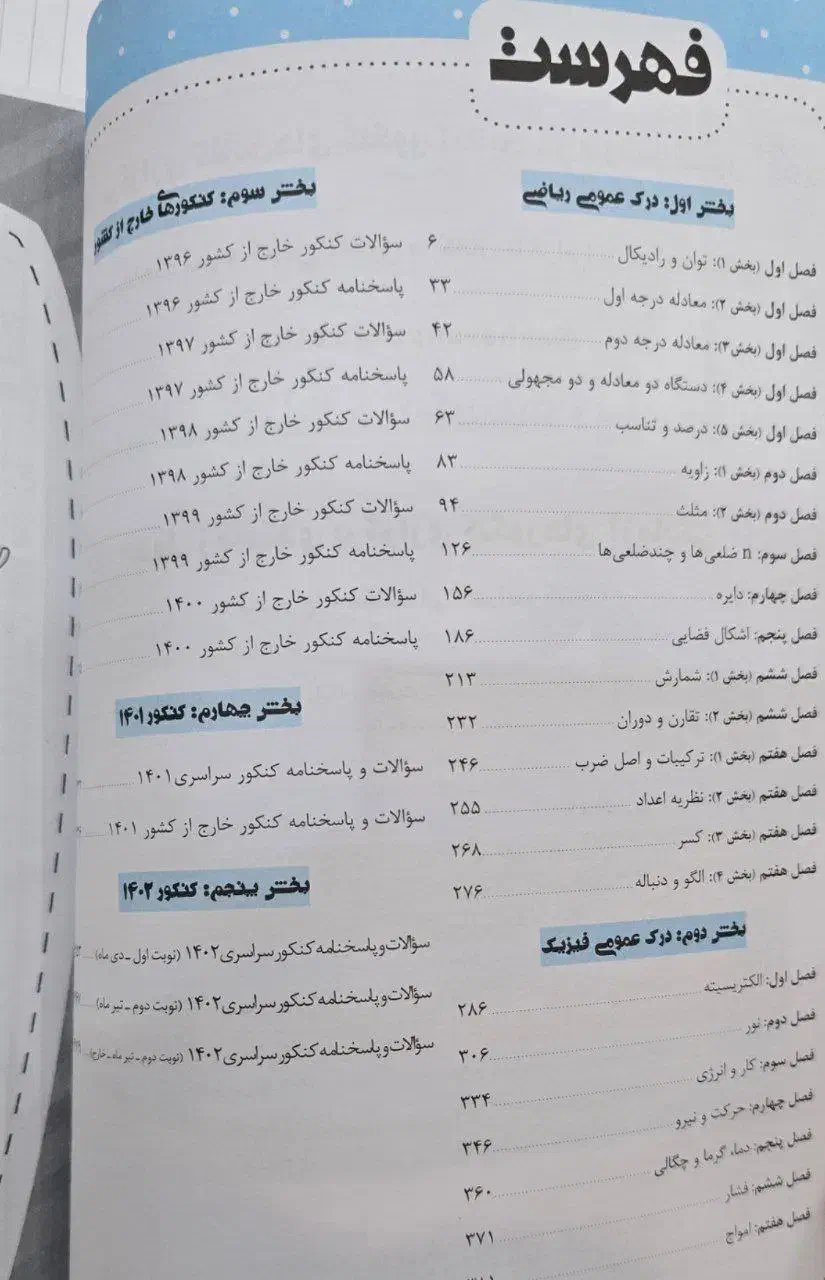 فهرست
بخش اول: درک عمومی ریاضی
فصل اول (بخش ۱): توان و رادیکال ۶
فصل اول (بخش ۲): معادله درجه اول ۳۳
فصل اول (بخش۳): معادله درجه دوم ۴۲
فصل اول (بخش ۴): دستگاه دو معادله و دو مجهولی ۵۸
فصل اول (بخش ۵): درصد و تناسب ۶۳
فصل دوم (بخش ۱): زاویه ۸۳
فصل دوم (بخش ۲): مثلث ۹۴
فصل سوم: n ضلعی‌ها و چندضلعی‌ها ۱۲۶
فصل چهارم: دایره ۱۵۶
فصل پنجم: اشکال فضایی ۱۸۶
فصل ششم (بخش ۱): شمارش ۲۱۳
فصل ششم (بخش ۲): تقارن و دوران ۲۳۲
فصل هفتم (بخش ۱): ترکیبات و اصل ضرب ۲۴۶
فصل هفتم (بخش ۲): نظریه اعداد ۲۵۵
فصل هفتم (بخش ۳): کسر ۲۶۸
فصل هفتم (بخش ۴): الگو و دنباله ۲۷۶
بخش دوم: درک عمومی فیزیک
فصل اول: الکتریسیته ۲۸۶
فصل دوم: نور ۳۰۶
فصل سوم: کار و انرژی ۳۳۴
فصل چهارم: حرکت و نیرو ۳۴۶
فصل پنجم: دما، گرما و چگالی ۳۶۰
فصل ششم: فشار ۳۷۱
فصل هفتم: امواج
بخش سوم: کنکورهای خارج از کشور
سؤالات کنکور خارج از کشور ۱۳۹۶
پاسخنامه کنکور خارج از کشور ۱۳۹۶
سؤالات کنکور خارج از کشور ۱۳۹۷
پاسخنامه کنکور خارج از کشور ۱۳۹۷
سؤالات کنکور خارج از کشور ۱۳۹۸
پاسخنامه کنکور خارج از کشور ۱۳۹۸
سؤالات کنکور خارج از کشور ۱۳۹۹
پاسخنامه کنکور خارج از کشور ۱۳۹۹
سؤالات کنکور خارج از کشور ۱۴۰۰
پاسخنامه کنکور خارج از کشور ۱۴۰۰
بخش چهارم: کنکور ۱۴۰۱
سؤالات و پاسخنامه کنکور سراسری ۱۴۰۱
سؤالات و پاسخنامه کنکور خارج از کشور ۱۴۰۱
بخش پنجم: کنکور ۱۴۰۲
سؤالات و پاسخنامه کنکور سراسری ۱۴۰۲ (نوبت اول - دی ماه)
سؤالات و پاسخنامه کنکور سراسری ۱۴۰۲ (نوبت دوم - تیر ماه)
سؤالات و پاسخنامه کنکور سراسری ۱۴۰۲ (نوبت دوم - تیر ماه - خارج)